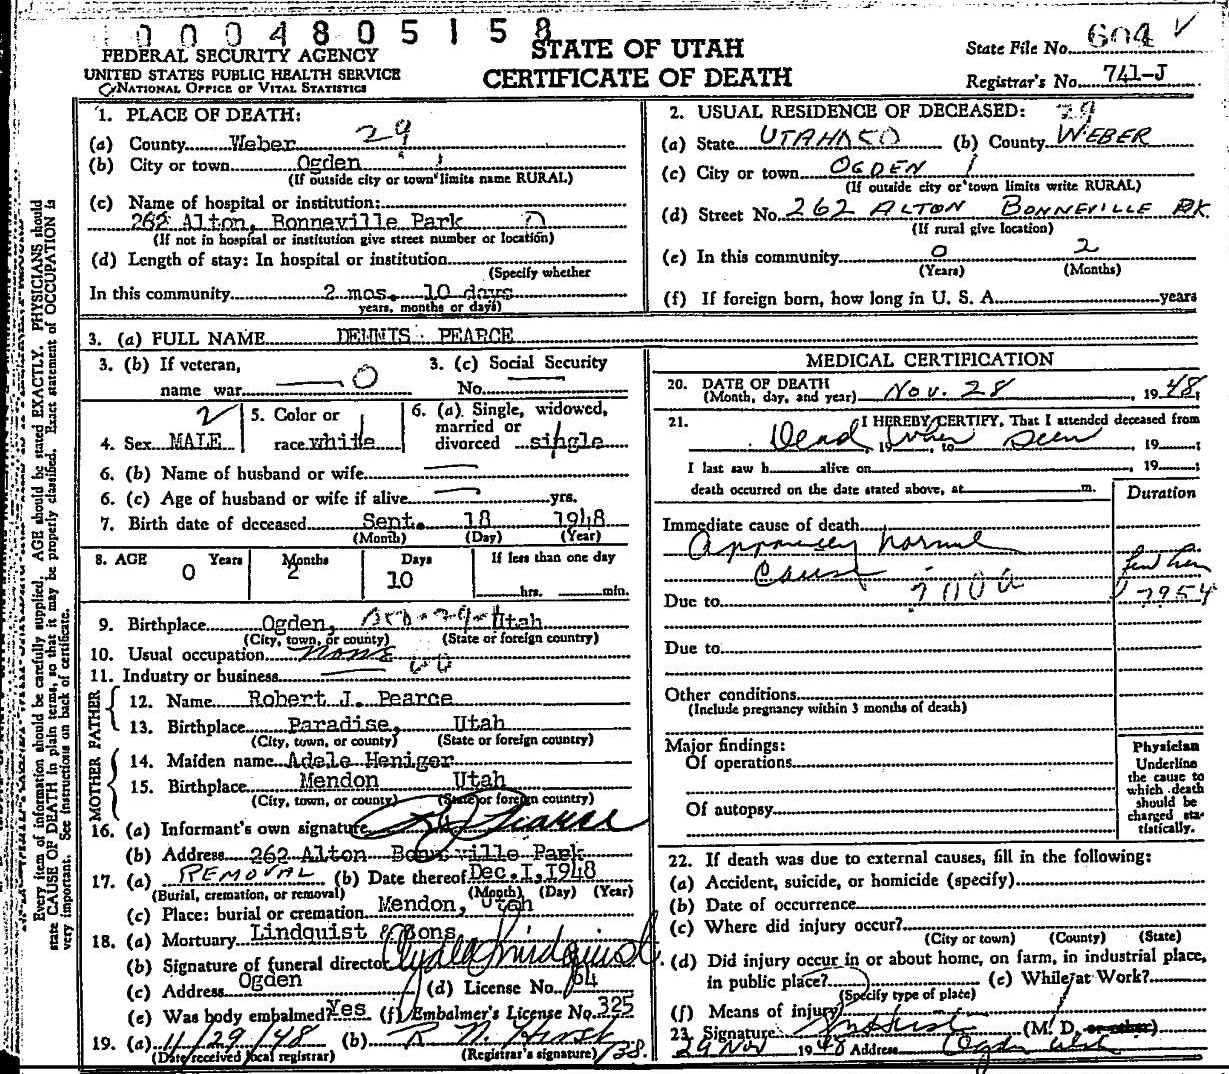 0004805158
FEDERAL SECURITY AGENCY
UNITED STATES PUBLIC HEALTH SERVICE
NATIONAL OFFICE OF VITAL STATISTICS
STATE OF UTAH
CERTIFICATE OF DEATH
State File No. 604
Registrar's No. 741-J
1. PLACE OF DEATH:
(a) County Weber 29
(b) City or town Ogden 1
(If outside city or town limits name RURAL)
(c) Name of hospital or institution:
262 Alton, Bonneville Park
(If not in hospital or institution give street number or location)
(d) Length of stay: In hospital or institution
(Specify whether
In this community 2 mos. 10 days
years, months or days)
2. USUAL RESIDENCE OF DECEASED: 29
(a) State UTAH (b) County WEBER
(c) City or town OGDEN 1
(If outside city or town limits write RURAL)
(d) Street No. 262 ALTON BONNEVILLE PK.
(If rural give location)
(e) In this community 0 2
(Years) (Months)
(f) If foreign born, how long in U. S. A. years
3. (a) FULL NAME DENNIS PEARCE
3. (b) If veteran,
name war 0
3. (c) Social Security
No.
4. Sex MALE 2
5. Color or
race white
6. (a) Single, widowed,
married or
divorced single
6. (b) Name of husband or wife
6. (c) Age of husband or wife if alive yrs.
7. Birth date of deceased Sept. 18 1948
(Month) (Day) (Year)
8. AGE Years Months Days If less than one day
0 2 10 hrs. min.
9. Birthplace Ogden, Utah
(City, town, or county) (State or foreign country)
10. Usual occupation NONE
11. Industry or business
FATHER
12. Name Robert J. Pearce
13. Birthplace Paradise, Utah
(City, town, or county) (State or foreign country)
MOTHER
14. Maiden name Adele Heniger
15. Birthplace Mendon Utah
(City, town, or county) (State or foreign country)
16. (a) Informant's own signature R J Pearce
(b) Address 262 Alton Bonneville Park
17. (a) REMOVAL (b) Date thereof Dec. 1, 1948
(Burial, cremation, or removal) (Month) (Day) (Year)
(c) Place: burial or cremation Mendon, Utah
18. (a) Mortuary Lindquist & Sons
(b) Signature of funeral director Clyde Lindquist
(c) Address Ogden (d) License No. 64
(e) Was body embalmed? Yes (f) Embalmer's License No. 325
19. (a) 11/29/48 (b) R N Hirst
(Date received local registrar) (Registrar's signature) /38.
MEDICAL CERTIFICATION
20. DATE OF DEATH
(Month, day, and year) Nov. 28, 1948
21. I HEREBY CERTIFY, That I attended deceased from
Dead when seen , 19 , to , 19 ;
I last saw h alive on , 19 ;
death occurred on the date stated above, at m.
Duration
Immediate cause of death
normal
cause
Due to 7954
Due to
Other conditions
(Include pregnancy within 3 months of death)
Major findings:
Of operations
Of autopsy
Physician
Underline
the cause to
which death
should be
charged sta-
tistically.
22. If death was due to external causes, fill in the following:
(a) Accident, suicide, or homicide (specify)
(b) Date of occurrence
(c) Where did injury occur?
(City or town) (County) (State)
(d) Did injury occur in or about home, on farm, in industrial place,
in public place? (e) While at Work?
(Specify type of place)
(f) Means of injury
23. Signature (M. D. or other)
29 Nov 1948 Address Ogden Utah
Every item of information should be carefully supplied. AGE should be stated EXACTLY. PHYSICIANS should
state CAUSE OF DEATH in plain terms, so that it may be properly classified. Exact statement of OCCUPATION is
very important. See instructions on back of certificate.